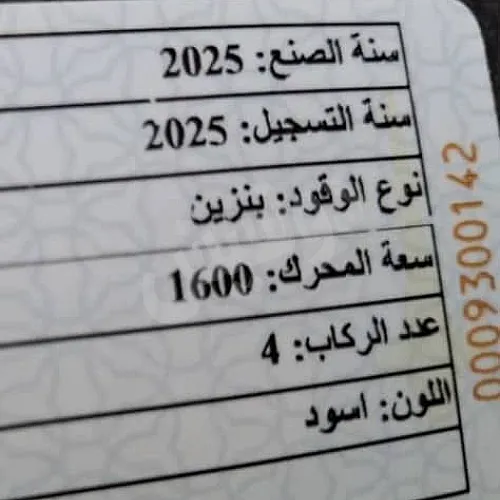 سنة الصنع: 2025
سنة التسجيل: 2025
نوع الوقود: بنزين
سعة المحرك: 1600
عدد الركاب: 4
اللون: اسود
000930014 2